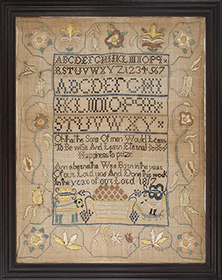 ABCDEFGHIKLMNOPQ
RSTUVWXYZ1234567
ABCDEFGHI
KLMNOPQR
STUVWXYZ
Oh that the Sons Of men Would Learn
To Be wise And Learn Eternal
Happiness to prize
Ann was Born in the year
of our Lord And Done this work
In the year of our Lord